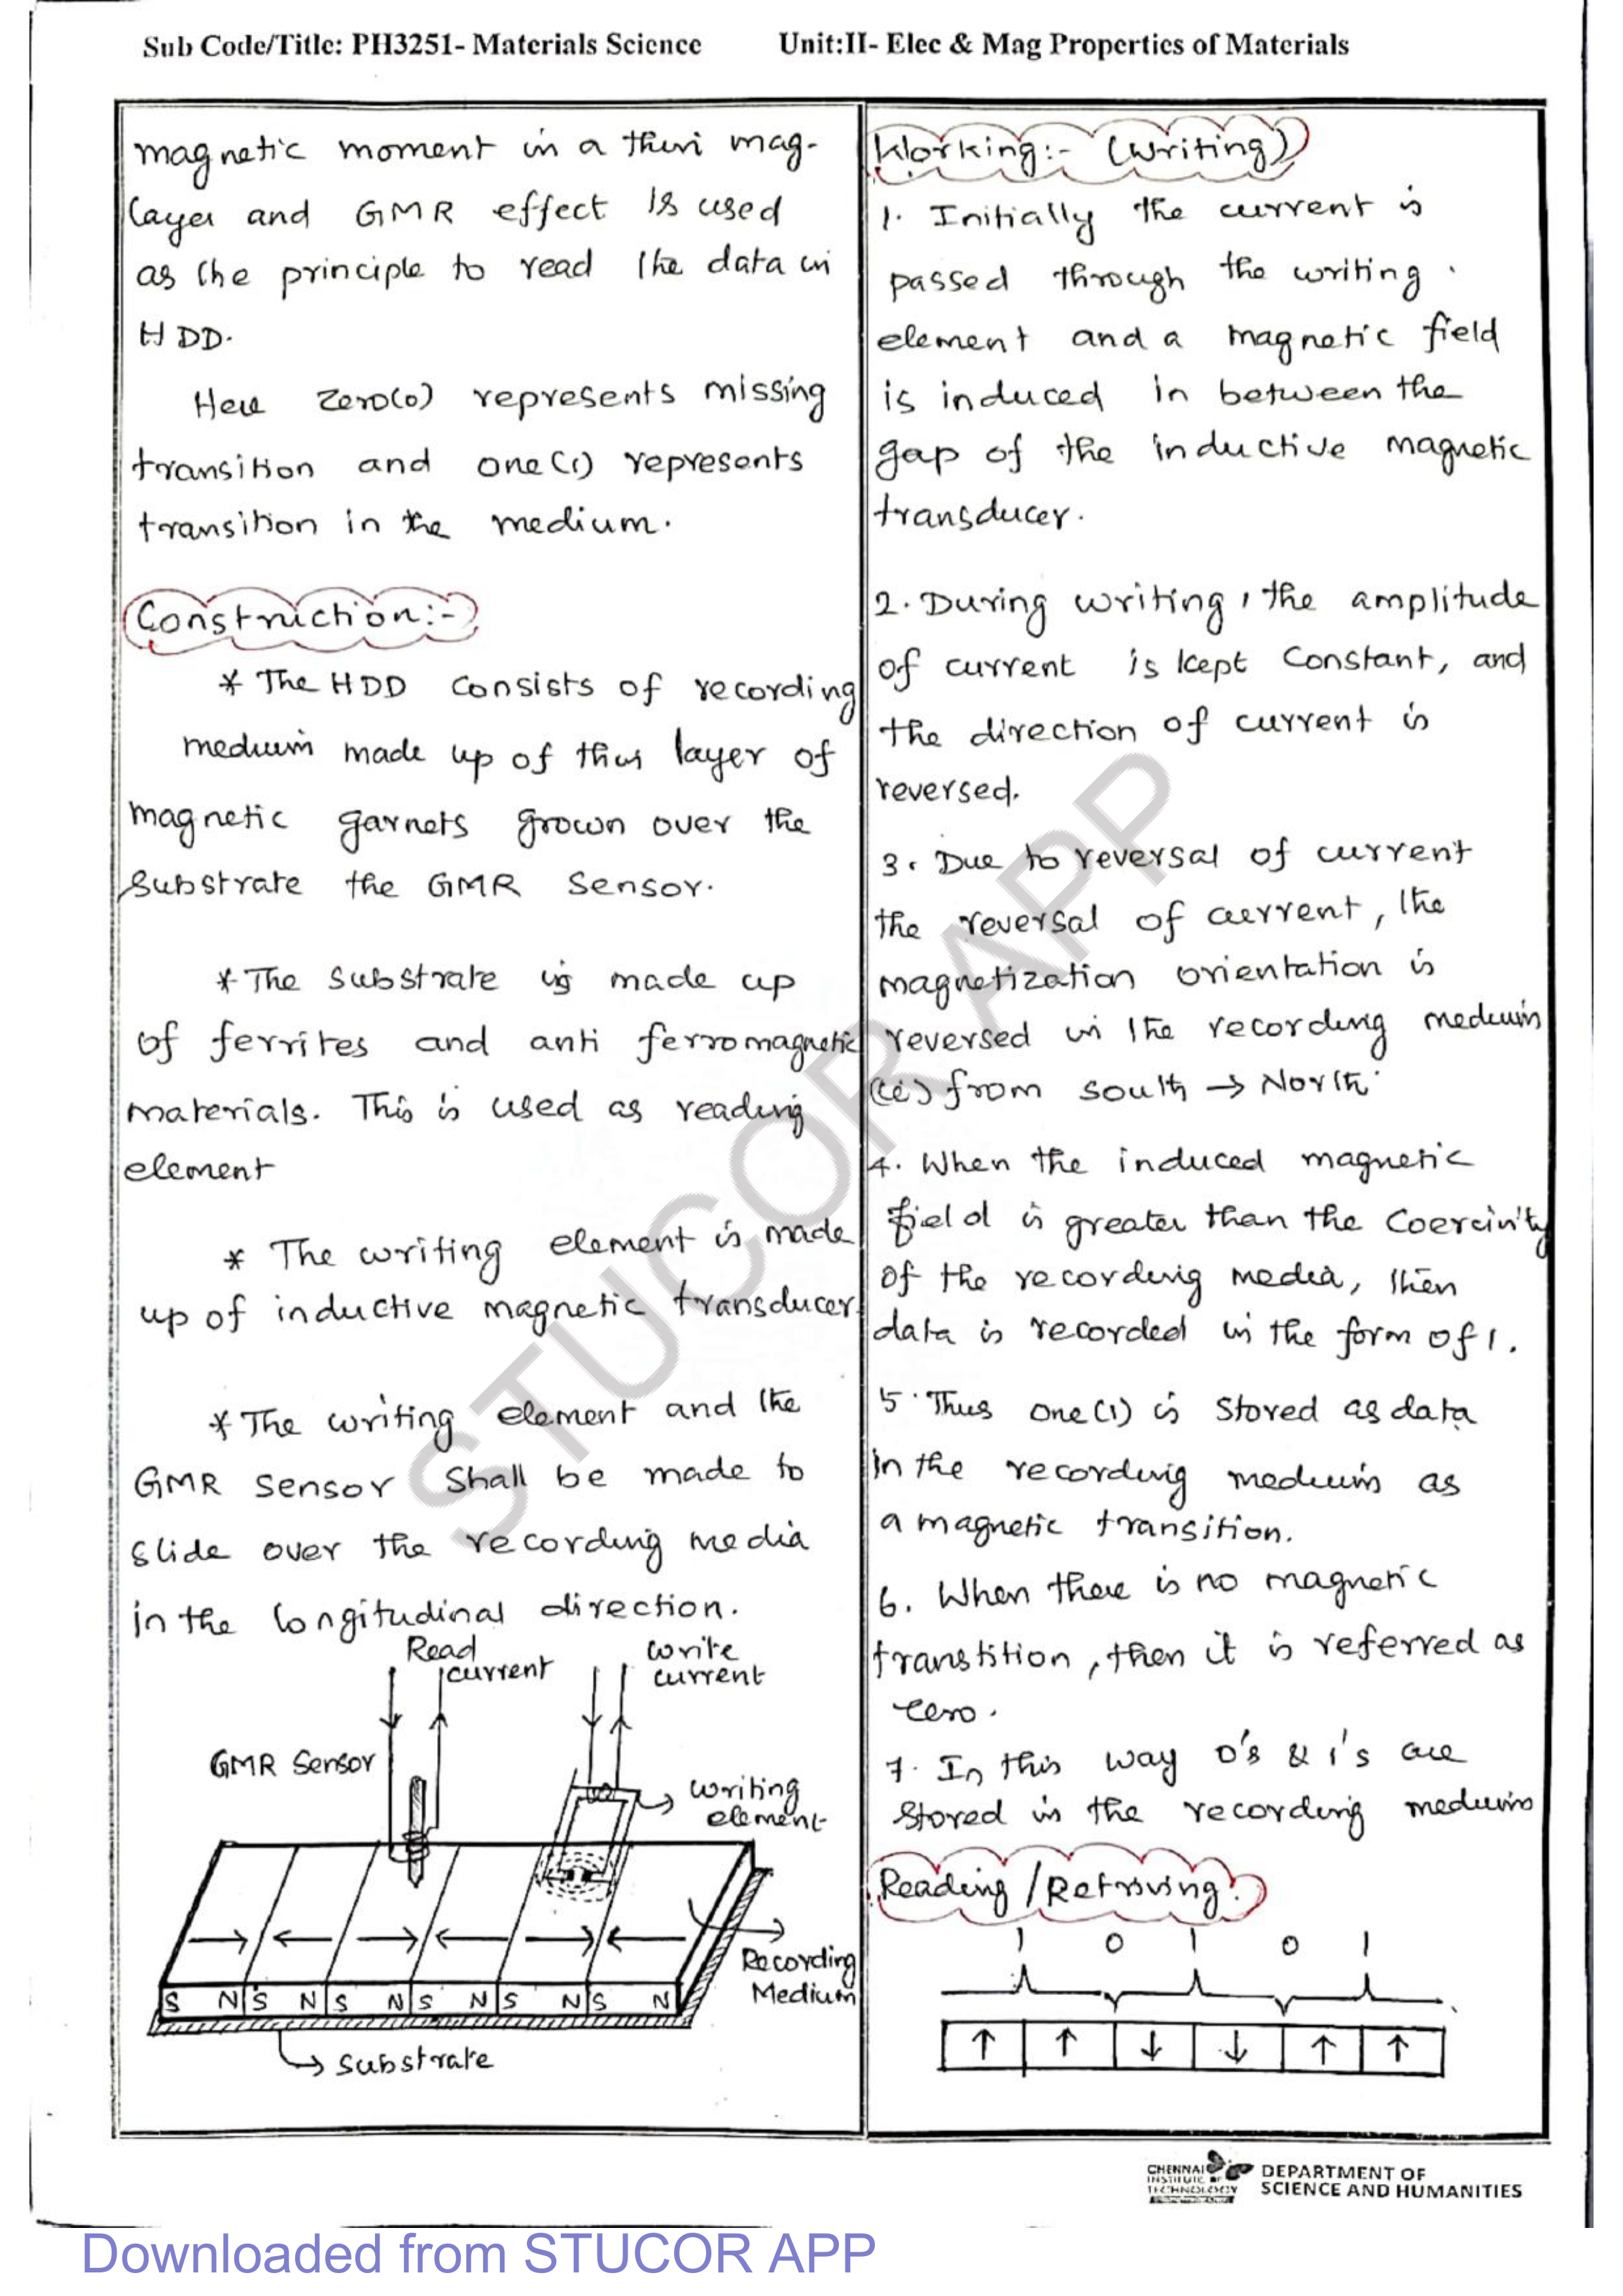 Sub Code/Title: PH3251- Materials Science Unit:II- Elec & Mag Properties of Materials
magnetic moment in a thin mag-
layer and GMR effect is used
as the principle to read the data in
HDD.
Here Zero(0) represents missing
transition and one(1) represents
transition in the medium.
Construction:-
* The HDD consists of recording
medium made up of thin layer of
magnetic garnets grown over the
substrate the GMR Sensor.
* The Substrate is made up
of ferrites and anti ferromagnetic
materials. This is used as reading
element
* The writing element is made
up of inductive magnetic transducer.
* The writing element and the
GMR sensor Shall be made to
slide over the recording media
in the longitudinal direction.
Read
current
write
current
GMR Sensor
writing
element
Recording
Medium
S N S N S N S N S N S N
Substrate
Working:- (Writing)
1. Initially the current is
passed through the writing
element and a magnetic field
is induced in between the
gap of the inductive magnetic
transducer.
2. During writing, the amplitude
of current is kept Constant, and
the direction of current is
reversed.
3. Due to reversal of current
the reversal of current, the
magnetization orientation is
reversed in the recording medium
(ie) from south → North
4. When the induced magnetic
field is greater than the Coercivity
of the recording media, then
data is recorded in the form of 1.
5. Thus one(1) is stored as data
in the recording medium as
a magnetic transition.
6. When there is no magnetic
transtition, then it is referred as
zero.
7. In this way 0's & 1's are
stored in the recording medium
Reading/Retriving:
1 0 1 0 1
↑ ↑ ↓ ↓ ↑ ↑
STUCOR APP
CHENNAI
INSTITUTE OF
TECHNOLOGY
DEPARTMENT OF
SCIENCE AND HUMANITIES
Downloaded from STUCOR APP